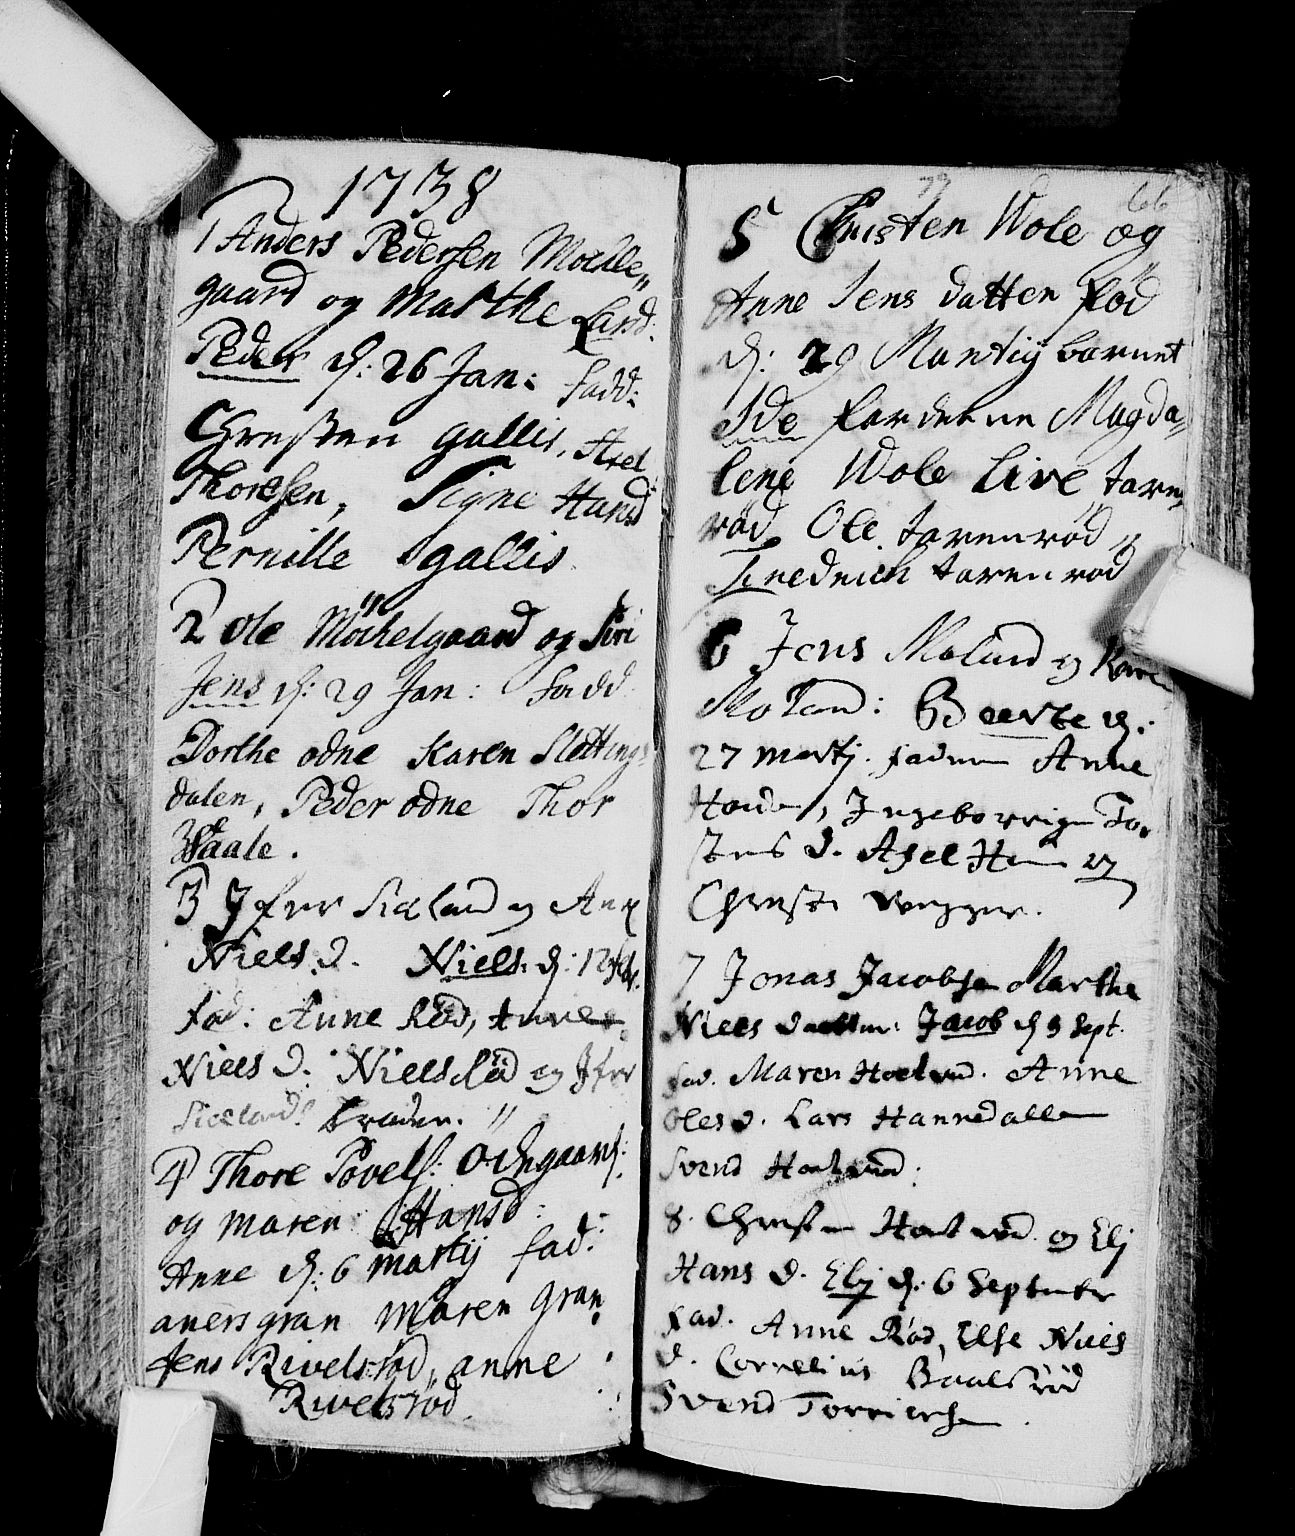 1738
1 Anders Pedersen Moelle„
gaard og Marthe Lard:
Peder d: 26 Jan: fadd:
Chresten gallis, Axel
Thoresen, Signe Hansd
Pernille gallis
2 Ole Möchelgaard og Siri
Jens d: 29 Jan: fadd
Dorthe odne Karen Slettings
dalen, Peder odne Thor
Waale.
3 Ifver Sieland og Ane
Niels d. Niels. d: 12 febr.
fad: Anne Röd, Anne
Niels d: Niels Röd og Ifver
Sielands brader. "
4 Thore Povels: Odegaard:
og maren Hansd:
Anne d: 6 martij fad:
aners gran Maren gran
Jens Rivelsröd, anne
Rivelsröd
73
66
5 Christen Wole og
Anne Jens datter föd
d: 29 Martij barnet
Ide fadderne Magda„
lene Wole Live taren„
röd Ole tarenröd og
Fredrich tarenröd
6 Jens Moland og Karen
Moland: Beerte d:
27 Martij. fadderne Anne
Ingeborrig To„
stens d. Axel og
Christen
7 Jonas Jacobsen Marthe
Niels datter: Jacob d 3 Sept.
fad. Maren Holtend. Anne
Oles d. Lars Hannedallen
Svend
8. Chresten og Elj
Hans d. Elj d. 6 Septembr
fad. Anne Röd, Else Niels
d. Cornelius Baalsröd
Svend Torriersen